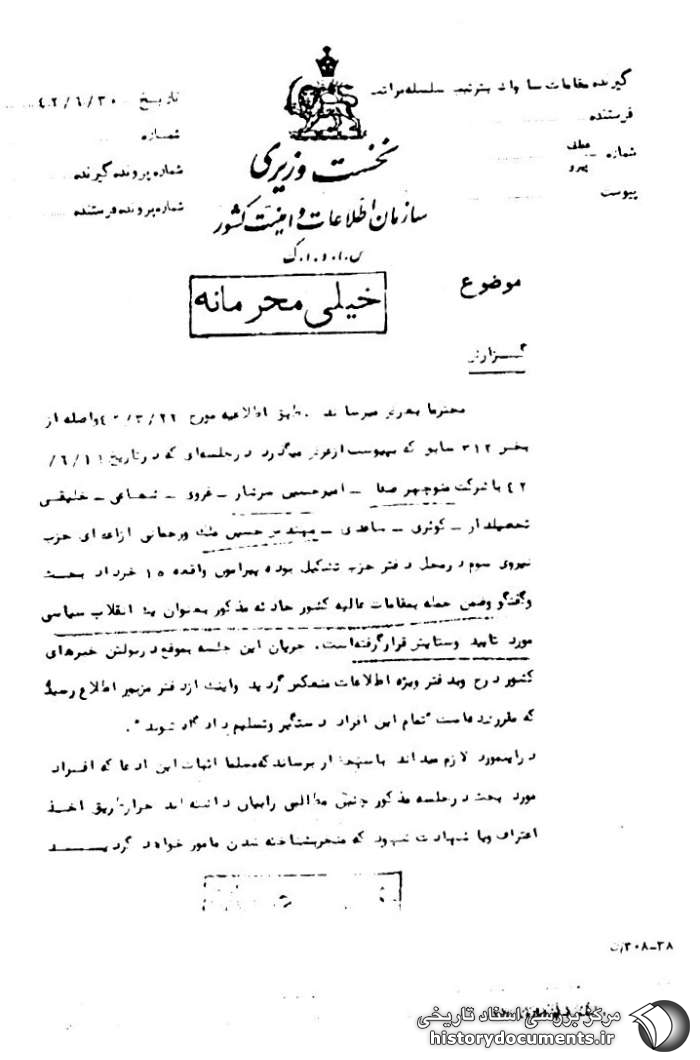 گیرنده مقامات ساواک بترتیب سلسله مراتب
فرستنده
شماره عطف
پیرو
پیوست
تاریخ ۴۲/۶/۳۰
شماره
شماره پرونده گیرنده
شماره پرونده فرستنده
نخست وزیری
سازمان اطلاعات و امنیت کشور
س.ا.و.ا.ک
موضوع
خیلی محرمانه
گزارش
محترما بعرض میرساند . طبق اطلاعیه مورخ واصله از
بخش ۳۱۲ سابق که بپیوست ازعرض میگذرد درجلسه‌ای که درتاریخ ۱۱ /۶/
۴۲ با شرکت منوچهر صفا - امیرحسین سرشار - غروی - شجاعی - خلیقی
تحصیلدار - کوثری - ساعدی - مهندس حسین ملک ورحمانی ازاعضای حزب
نیروی سوم درمحل دفتر حزب تشکیل بوده پیرامون واقعه ۱۵ خرداد بحث
وگفتگو وضمن حمله بمقامات عالیه کشور حادثه مذکور بعنوان یک انقلاب سیاسی
مورد تایید وستایش قرارگرفته‌است . جریان این جلسه بموقع دربولتن خبرهای
کشور درج وبه دفتر ویژه اطلاعات منعکس گردید واینک ازدفتر مزبور اطلاع رسیده
که مقررفرموده‌است "تمام این افراد دستگیر وتسلیم دادگاه شوند" .
دراینمورد لازم میداند باستحضار برساند که مسلما اثبات این ادعا که افراد
مورد بحث درجلسه مذکور چنین مطالبی رابیان داشته اند جزازطریق اخذ
اعتراف ویا شهادت شهود که منجربشناخته شدن مامور خواهد گردید
۳۸-۳۰۸/ت
مرکز بررسی اسناد تاریخی
historydocuments.ir